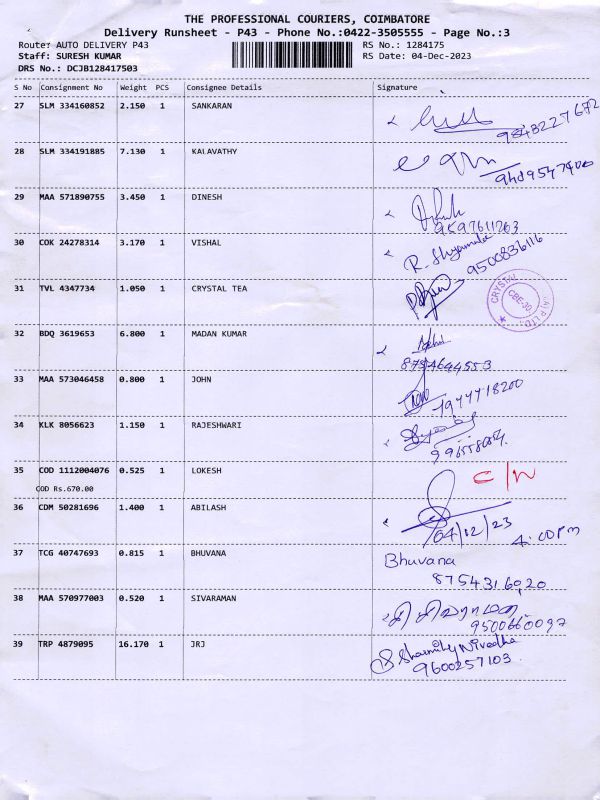 THE PROFESSIONAL COURIERS, COIMBATORE
Delivery Runsheet - P43 - Phone No.:0422-3505555 - Page No.:3
Route: AUTO DELIVERY P43 RS No.: 1284175
Staff: SURESH KUMAR RS Date: 04-Dec-2023
DRS No.: DCJB128417503
S No Consignment No Weight PCS Consignee Details Signature
27 SLM 334160852 2.150 1 SANKARAN
9843227672
28 SLM 334191885 7.130 1 KALAVATHY
29 MAA 571890755 3.450 1 DINESH
9597611263
30 COK 24278314 3.170 1 VISHAL
R. Shyamala
9500836116
31 TVL 4347734 1.050 1 CRYSTAL TEA
CRYSTAL (P) LTD. CBE-30
32 BDQ 3619653 6.800 1 MADAN KUMAR
8754644553
33 MAA 573046458 0.800 1 JOHN
7944418200
34 KLK 8056623 1.150 1 RAJESHWARI
35 COD 1112004076 0.525 1 LOKESH C/N
COD Rs.670.00
36 CDM 50281696 1.400 1 ABILASH
04/12/23
4:00 Pm
37 TCG 40747693 0.815 1 BHUVANA Bhuvana
8754316020
38 MAA 570977003 0.520 1 SIVARAMAN சிவராமன்
9500660097
39 TRP 4879095 16.170 1 JRJ Nivedha
9600257103